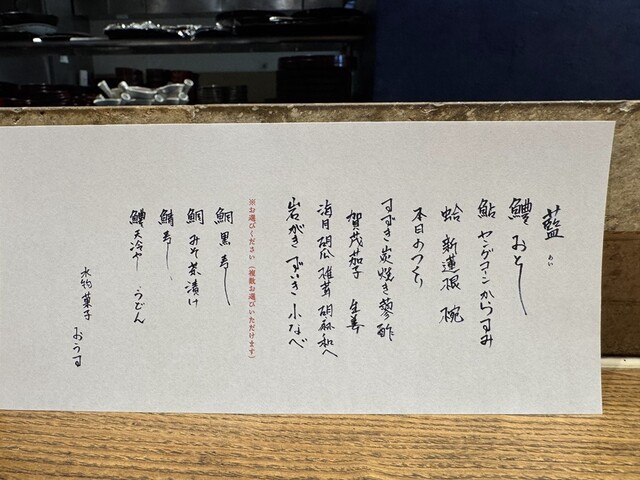 藍
あい
鱧 おとし
鮎 ヤングコーン からすみ
蛤 新蓮根 椀
本日のつくり
すずき炭焼き 蓼酢
賀茂茄子 生姜
海月 胡瓜 椎茸 胡麻和へ
岩がき ずいき 小なべ
※お選びください（複数お選びいただけます）
鯛 黒寿し
鯛 みそ茶漬け
鯖寿し
鱧天冷や うどん
水物 菓子 おうす